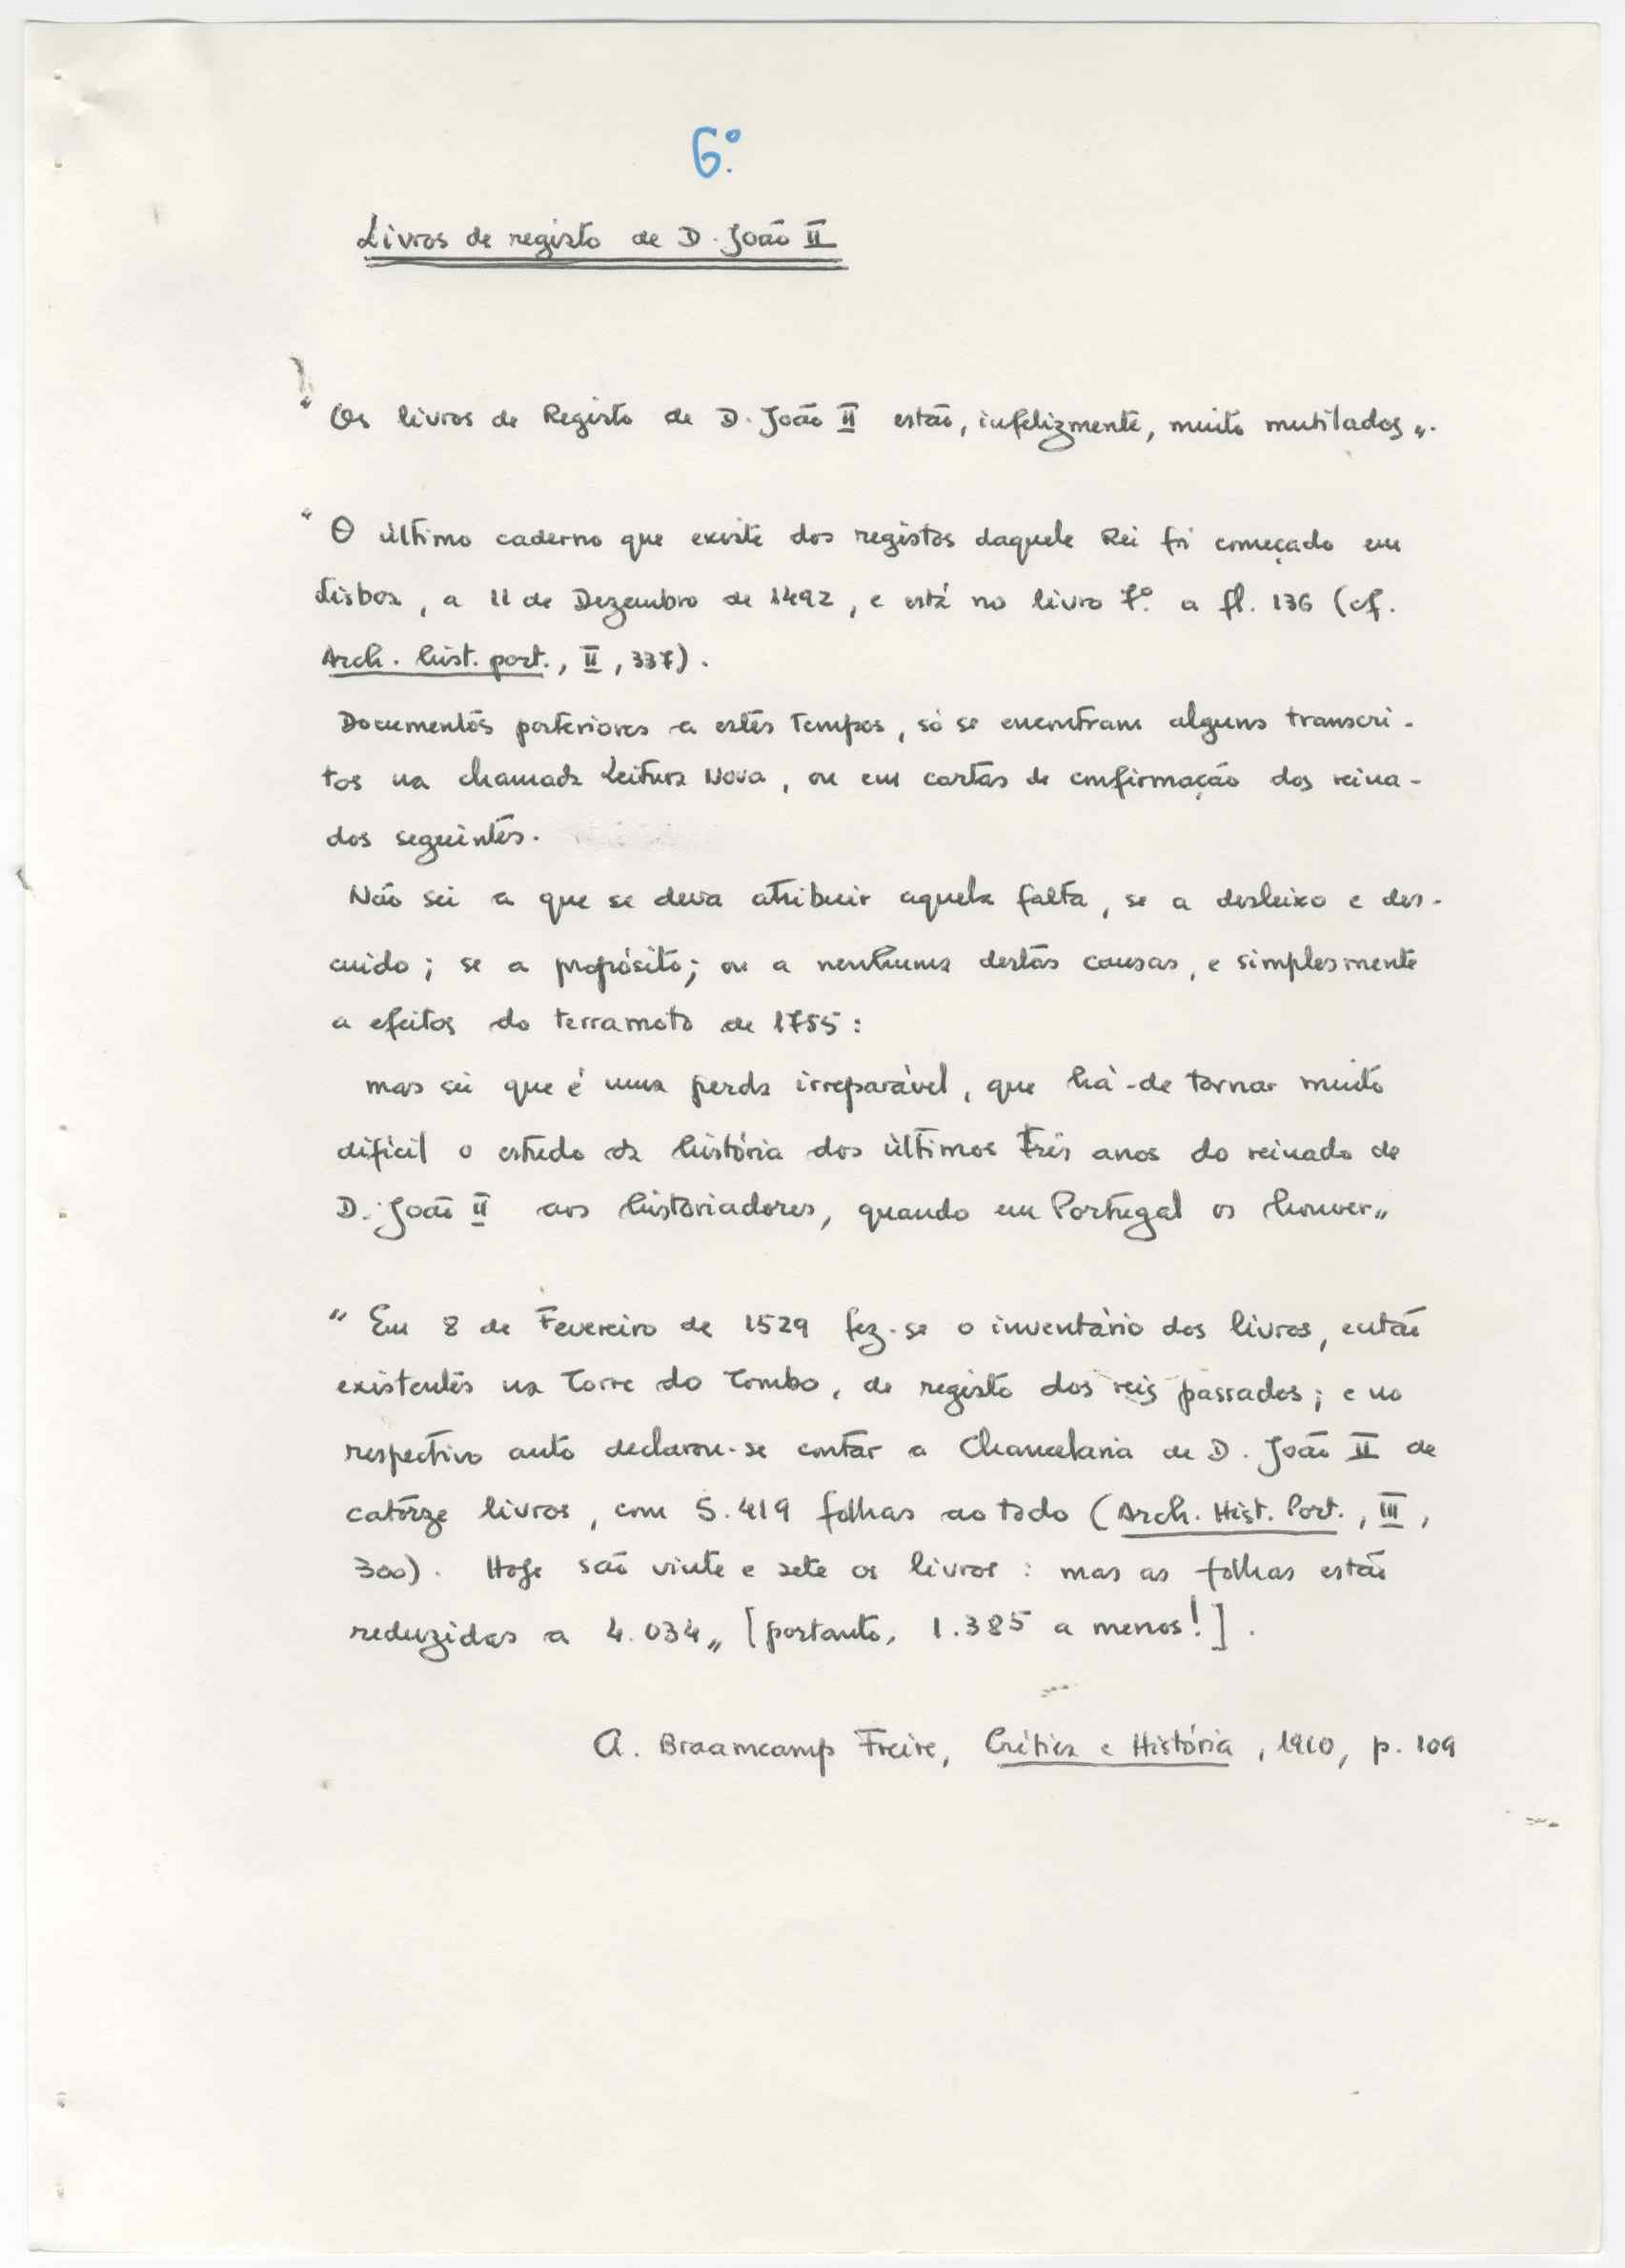 6º.
Livros de registo de D. João II
"Os livros de Registo de D. João II estão, infelizmente, muito mutilados".
"O último caderno que existe dos registos daquele Rei foi começado em
Lisboa, a 11 de Dezembro de 1492, e está no livro 7º. a fl. 136 (cf.
Arch. hist. port., II, 337).
Documentos posteriores a estes tempos, só se encontram alguns transcri-
tos na chamada Leitura Nova, ou em cartas de confirmação dos reina-
dos seguintes.
Não sei a que se deva atribuir aquela falta, se a desleixo e des-
cuido; se a propósito; ou a nenhuma destas causas, e simplesmente
a efeitos do terramoto de 1755:
mas sei que é uma perda irreparável, que há-de tornar muito
difícil o estudo da história dos últimos três anos do reinado de
D. João II aos historiadores, quando em Portugal os houver"
"Em 8 de Fevereiro de 1529 fez-se o inventário dos livros, então
existentes na Torre do Tombo, de registo dos reis passados; e no
respectivo auto declarou-se contar a Chancelaria de D. João II de
catorze livros, com 5.419 folhas ao todo (Arch. Hist. Port., III,
300). Hoje são vinte e sete os livros: mas as folhas estão
reduzidas a 4.034" [portanto, 1.385 a menos!].
A. Braamcamp Freire, Crítica e História, 1910, p. 109